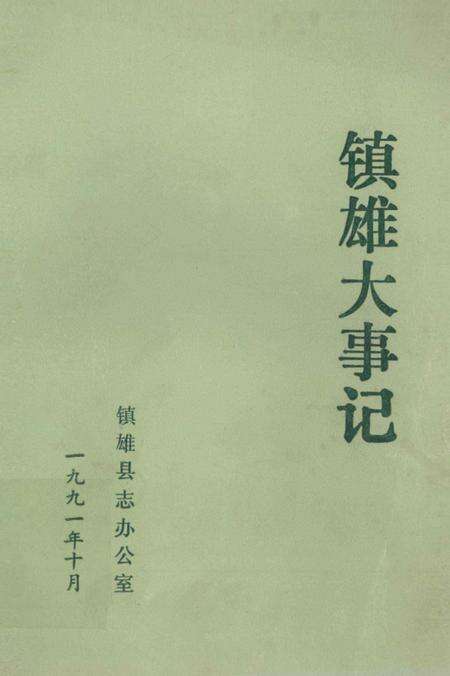 镇雄大事记
镇雄县志办公室
一九九一年十月